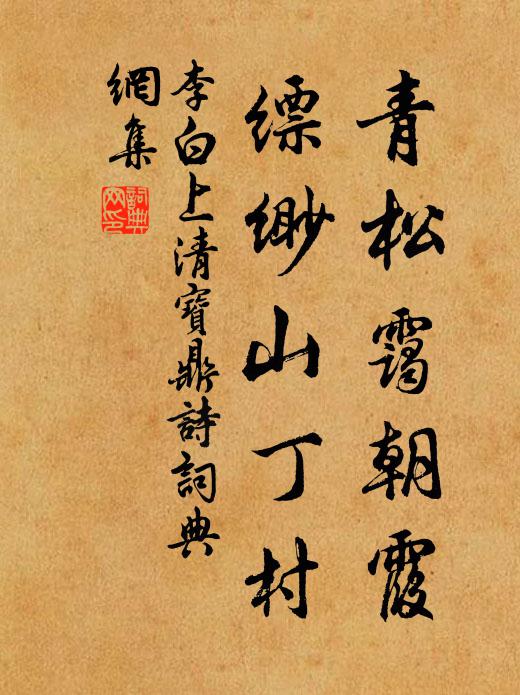 青松靄朝霞
縹緲山丁村
李白上清寶鼎詩詞典
網集
詞典
網印